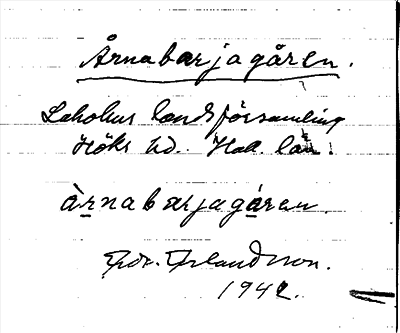 Årnabarjagåren.
Laholms landsförsamling
Höks hd. Hall. län.
àrnabarjagáren.
Erlandsson.
1942.